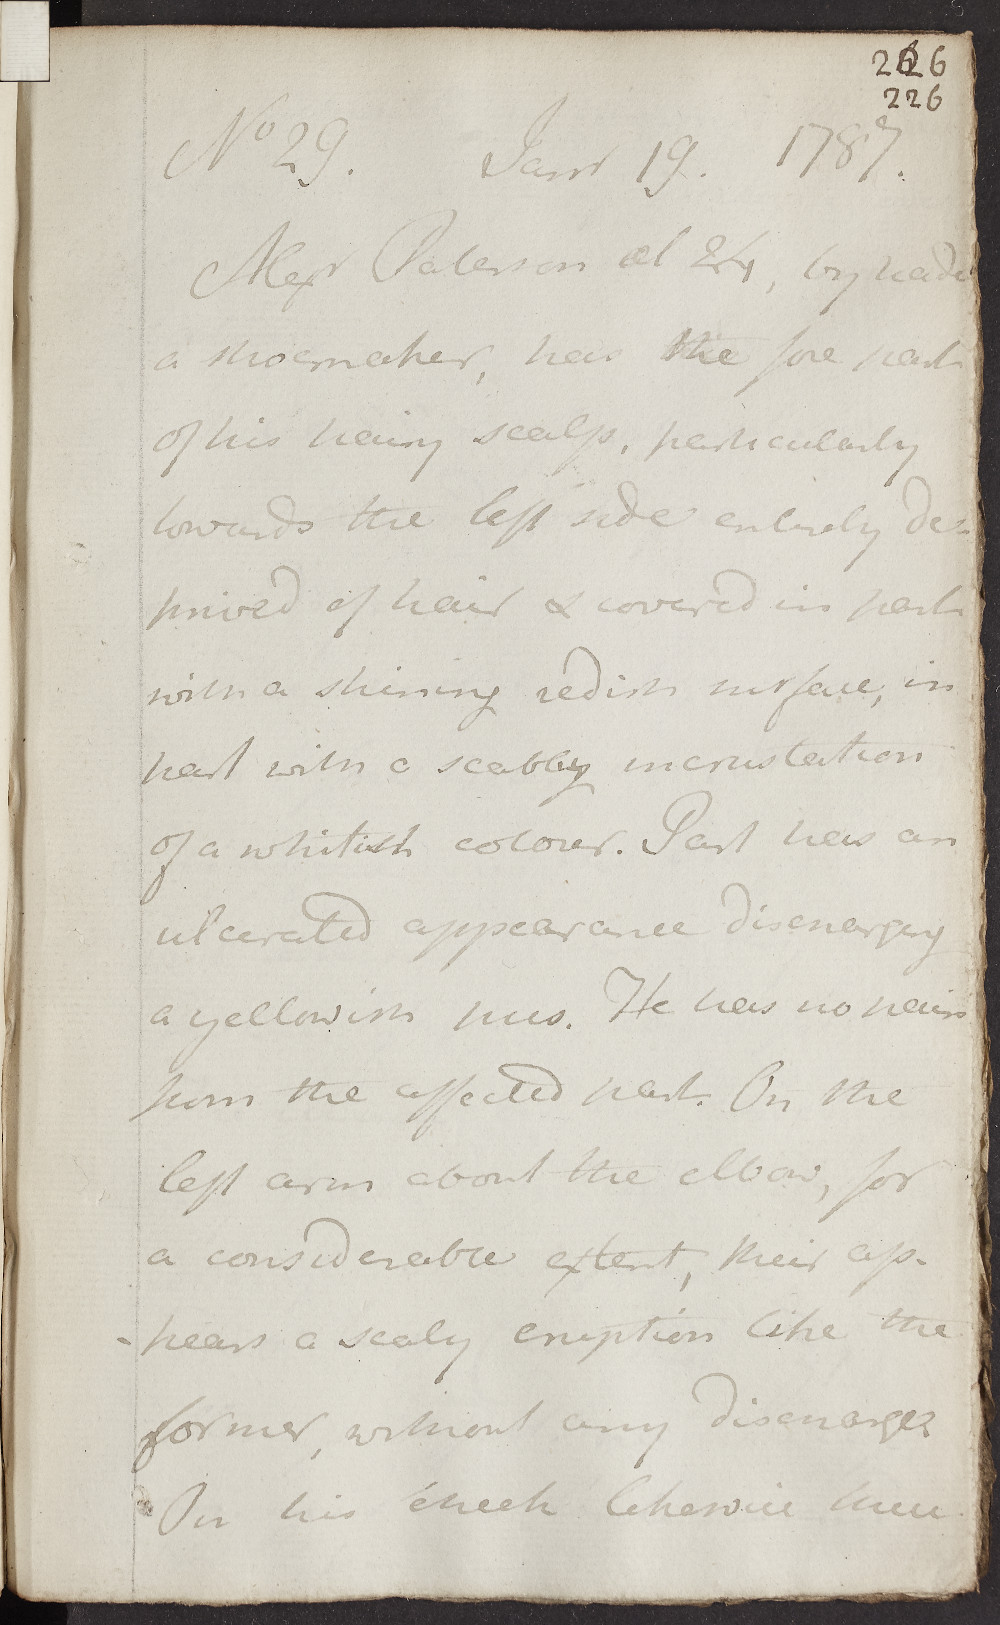 2626
226
No 29. Janr 19. 1787.
Alexr Paterson æt 24, by trade
a shoemaker, has the fore part
of his hairy scalp, particularly
towards the left side entirely de-
prived of hair & covered in part
with a shining redish surface, in
part with a scabby incrustation
of a whitish colour. Part has an
ulcerated appearance discharging
a yellowish pus. He has no pain
from the affected part. On the
left arm about the elbow, for
a considerable extent, their ap-
-pears a scaly eruption like the
former, without any discharge
On his cheek likewise there